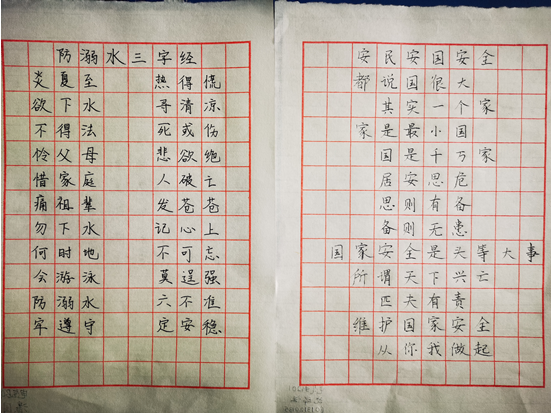 防溺水三字经
炎夏至 热得慌
欲下水 寻清凉
不得法 死或伤
怜父母 悲欲绝
惜家庭 人破亡
痛祖辈 发苍苍
勿下水 记心上
何时地 不可忘
会游泳 莫逞强
防溺水 六不准
牢遵守 定安稳
安民安国安全
都说国很大
其实一个家
家是最小国
国是千万家
居安思危
思则有备
备则无患
国家安全是头等大事
所谓天下兴亡
匹夫有责
维护国家安全
从你我做起